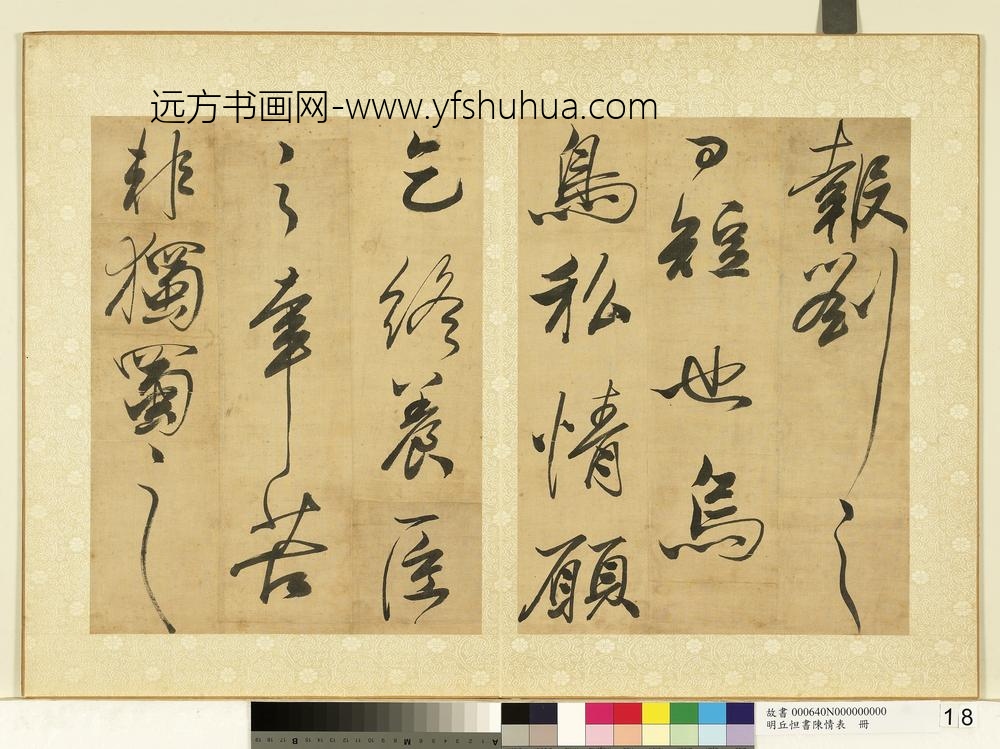 远方书画网-www.yfshuhua.com
報劉之
日短也烏
鳥私情願
乞終養臣
之辛苦
非獨蜀之
故書 000640N000000000
明丘怛書陳情表 冊
18